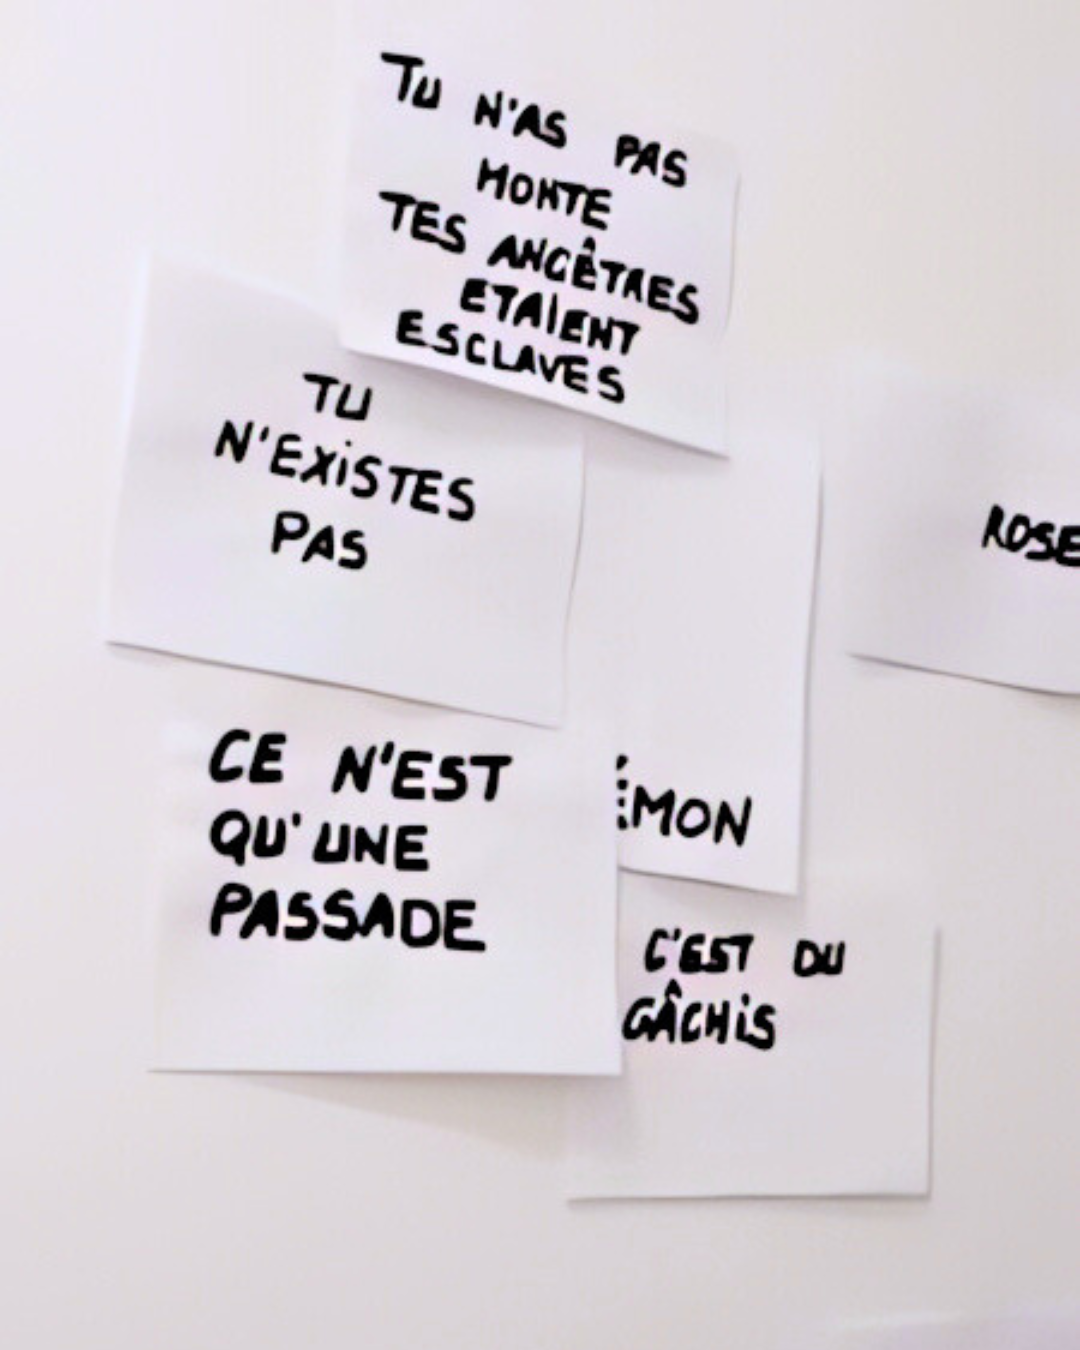 TU N'AS PAS
HONTE
TES ANCÊTRES
ETAIENT
ESCLAVES
TU
N'EXISTES
PAS
ROSE
CE N'EST
QU'UNE
PASSADE
ÉMON
C'EST DU
GÂCHIS